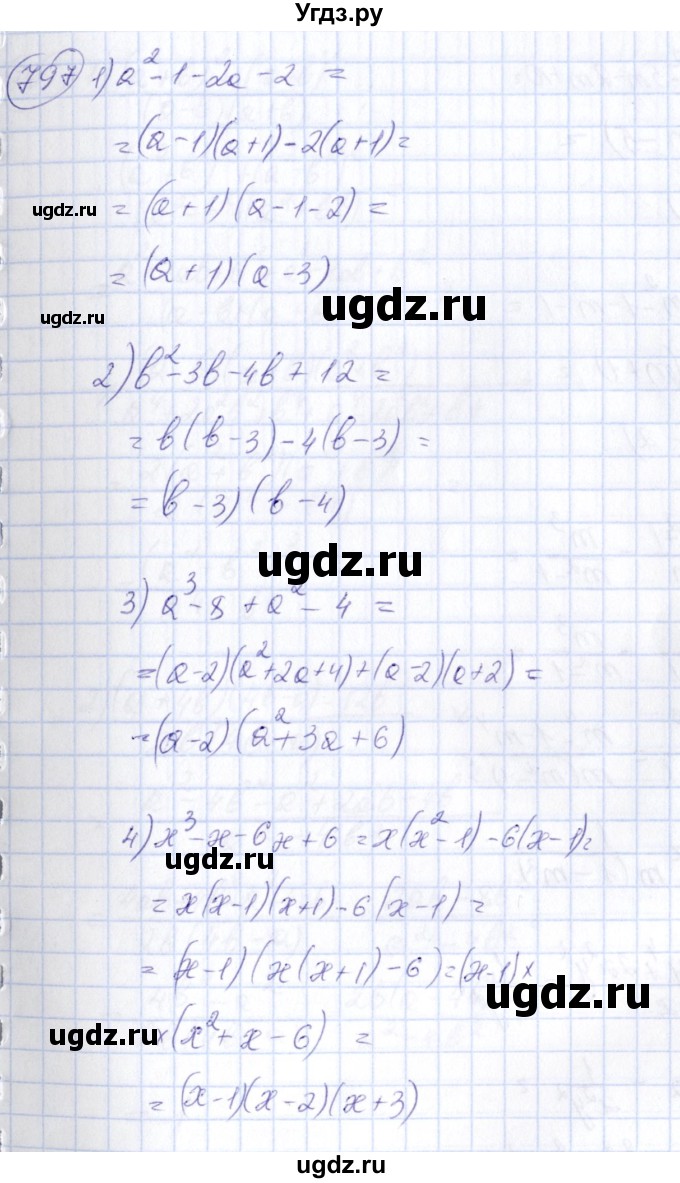 Угдз.ру
797 1) a² - 1 - 2a - 2 =
= (a - 1)(a + 1) - 2(a + 1) =
ugdz.ru
= (a + 1)(a - 1 - 2) =
= (a + 1)(a - 3)
ugdz.ru
ugdz.ru
2) b² - 3b - 4b + 12 =
= b(b - 3) - 4(b - 3) =
= (b - 3)(b - 4)
ugdz.ru
3) a³ - 8 + a² - 4 =
= (a - 2)(a² + 2a + 4) + (a - 2)(a + 2) =
= (a - 2)(a² + 3a + 6)
4) x³ - x - 6x + 6 = x(x² - 1) - 6(x - 1) =
ugdz.ru
= x(x - 1)(x + 1) - 6(x - 1) =
= (x - 1)(x(x + 1) - 6) = (x - 1) ×
ugdz.ru
ugdz.ru
× (x² + x - 6) =
= (x - 1)(x - 2)(x + 3)
ugdz.ru